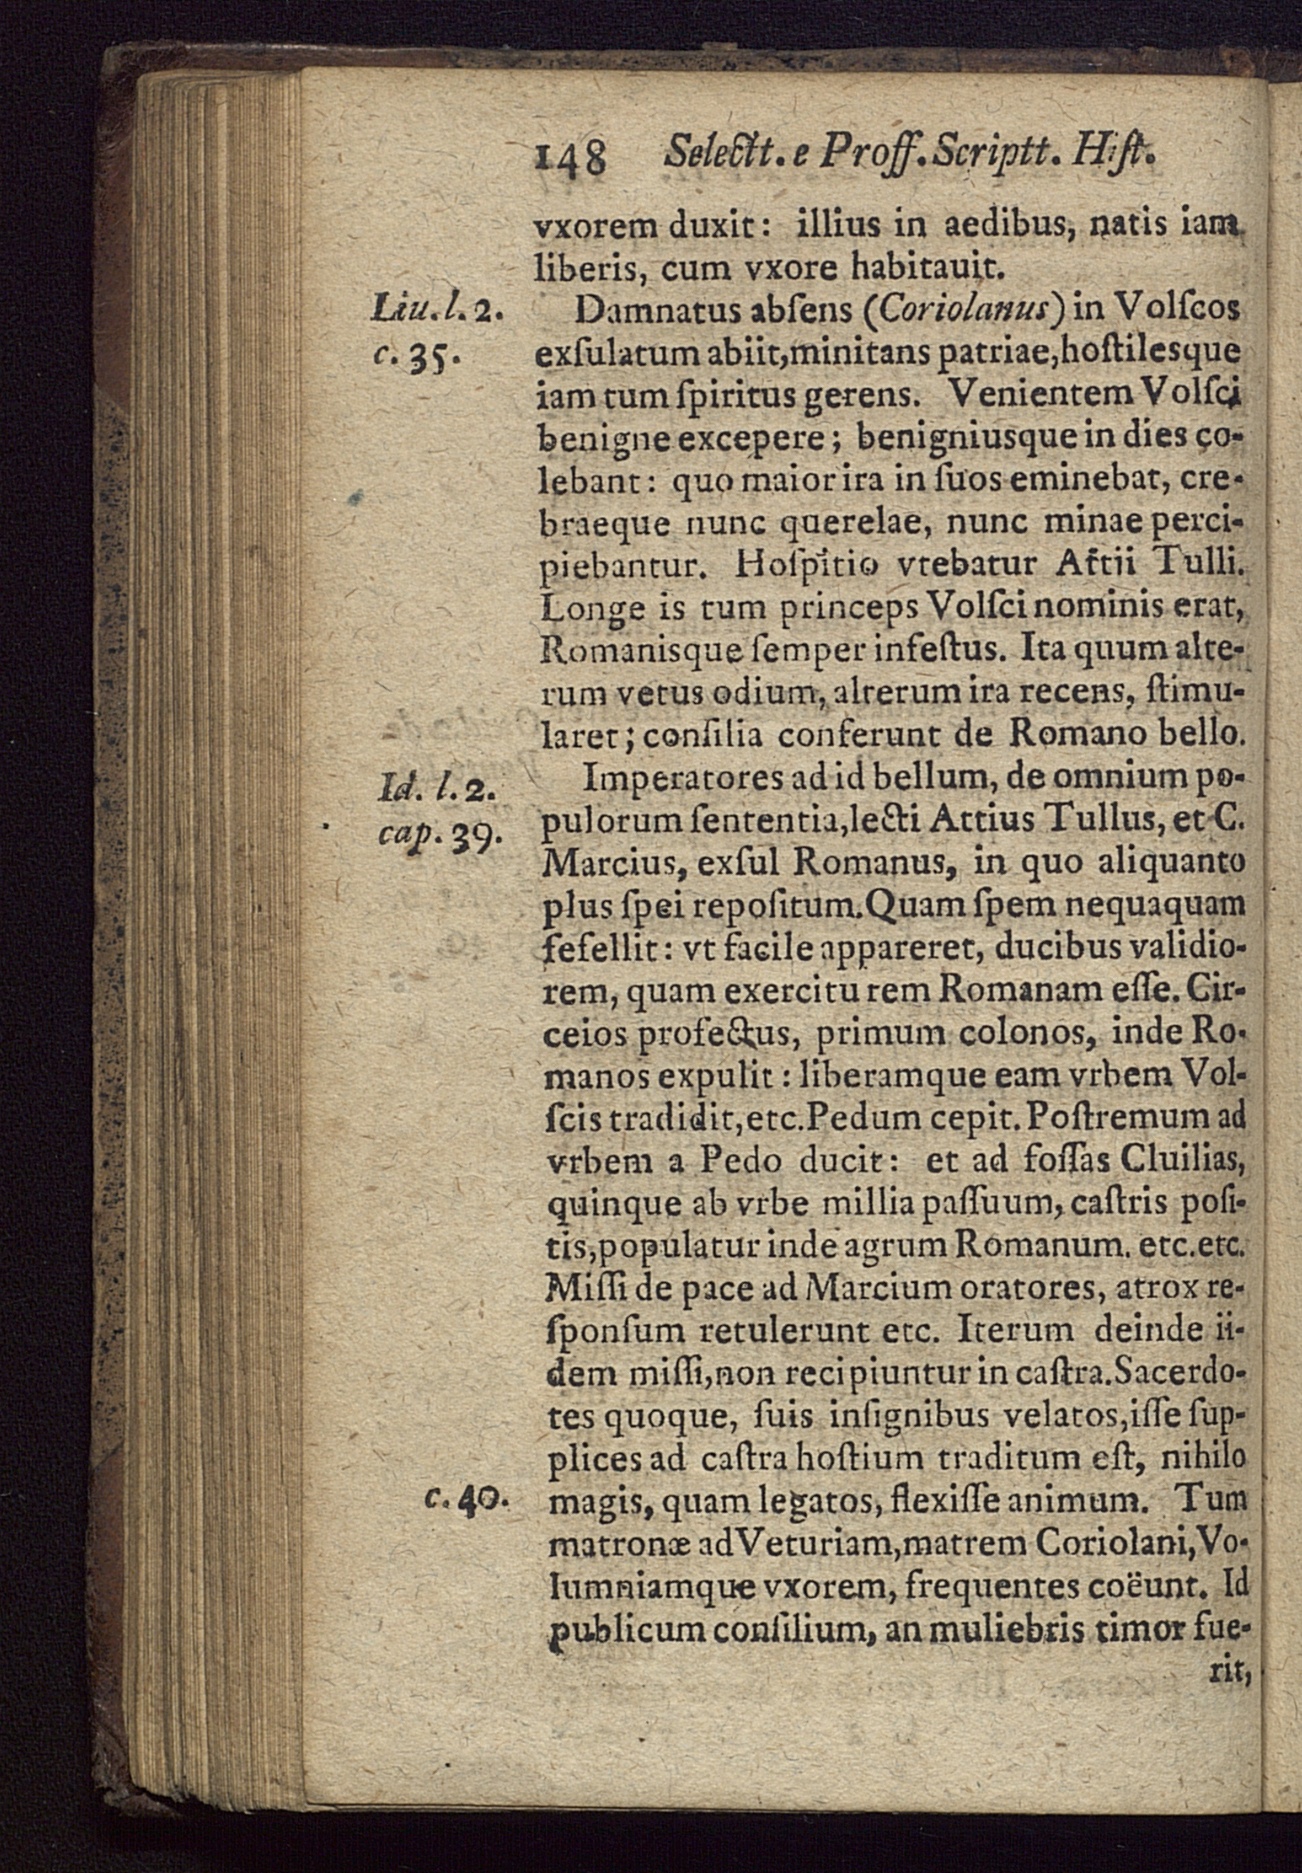 148 Selectt. e Proff. Scriptt. Hiſt.
vxorem duxit: illius in aedibus, natis iam
liberis, cum vxore habitauit.
Liu. l. 2. Damnatus abſens (Coriolanus) in Volſcos
c. 35. exſulatum abiit, minitans patriae, hoſtilesque
iam tum ſpiritus gerens. Venientem Volſci
benigne excepere; benigniusque in dies co-
lebant: quo maior ira in ſuos eminebat, cre-
braeque nunc querelae, nunc minae perci-
piebantur. Hoſpitio vtebatur Attii Tulli.
Longe is tum princeps Volſci nominis erat,
Romanisque ſemper infeſtus. Ita quum alte-
rum vetus odium, alterum ira recens, ſtimu-
laret; conſilia conferunt de Romano bello.
Id. l. 2. Imperatores ad id bellum, de omnium po-
cap. 39. pulorum ſententia, lecti Attius Tullus, et C.
Marcius, exſul Romanus, in quo aliquanto
plus ſpei repoſitum. Quam ſpem nequaquam
fefellit: vt facile appareret, ducibus validio-
rem, quam exercitu rem Romanam eſſe. Cir-
ceios profectus, primum colonos, inde Ro-
manos expulit: liberamque eam vrbem Vol-
ſcis tradidit, etc. Pedum cepit. Poſtremum ad
vrbem a Pedo ducit: et ad foſſas Cluilias,
quinque ab vrbe millia paſſuum, caſtris poſi-
tis, populatur inde agrum Romanum. etc. etc.
Miſſi de pace ad Marcium oratores, atrox re-
ſponſum retulerunt etc. Iterum deinde ii-
dem miſſi, non recipiuntur in caſtra. Sacerdo-
tes quoque, ſuis inſignibus velatos, iſſe ſup-
plices ad caſtra hoſtium traditum eſt, nihilo
c. 40. magis, quam legatos, flexiſſe animum. Tum
matronæ ad Veturiam, matrem Coriolani, Vo-
lumniamque vxorem, frequentes coëunt. Id
publicum conſilium, an muliebris timor fue-
rit,